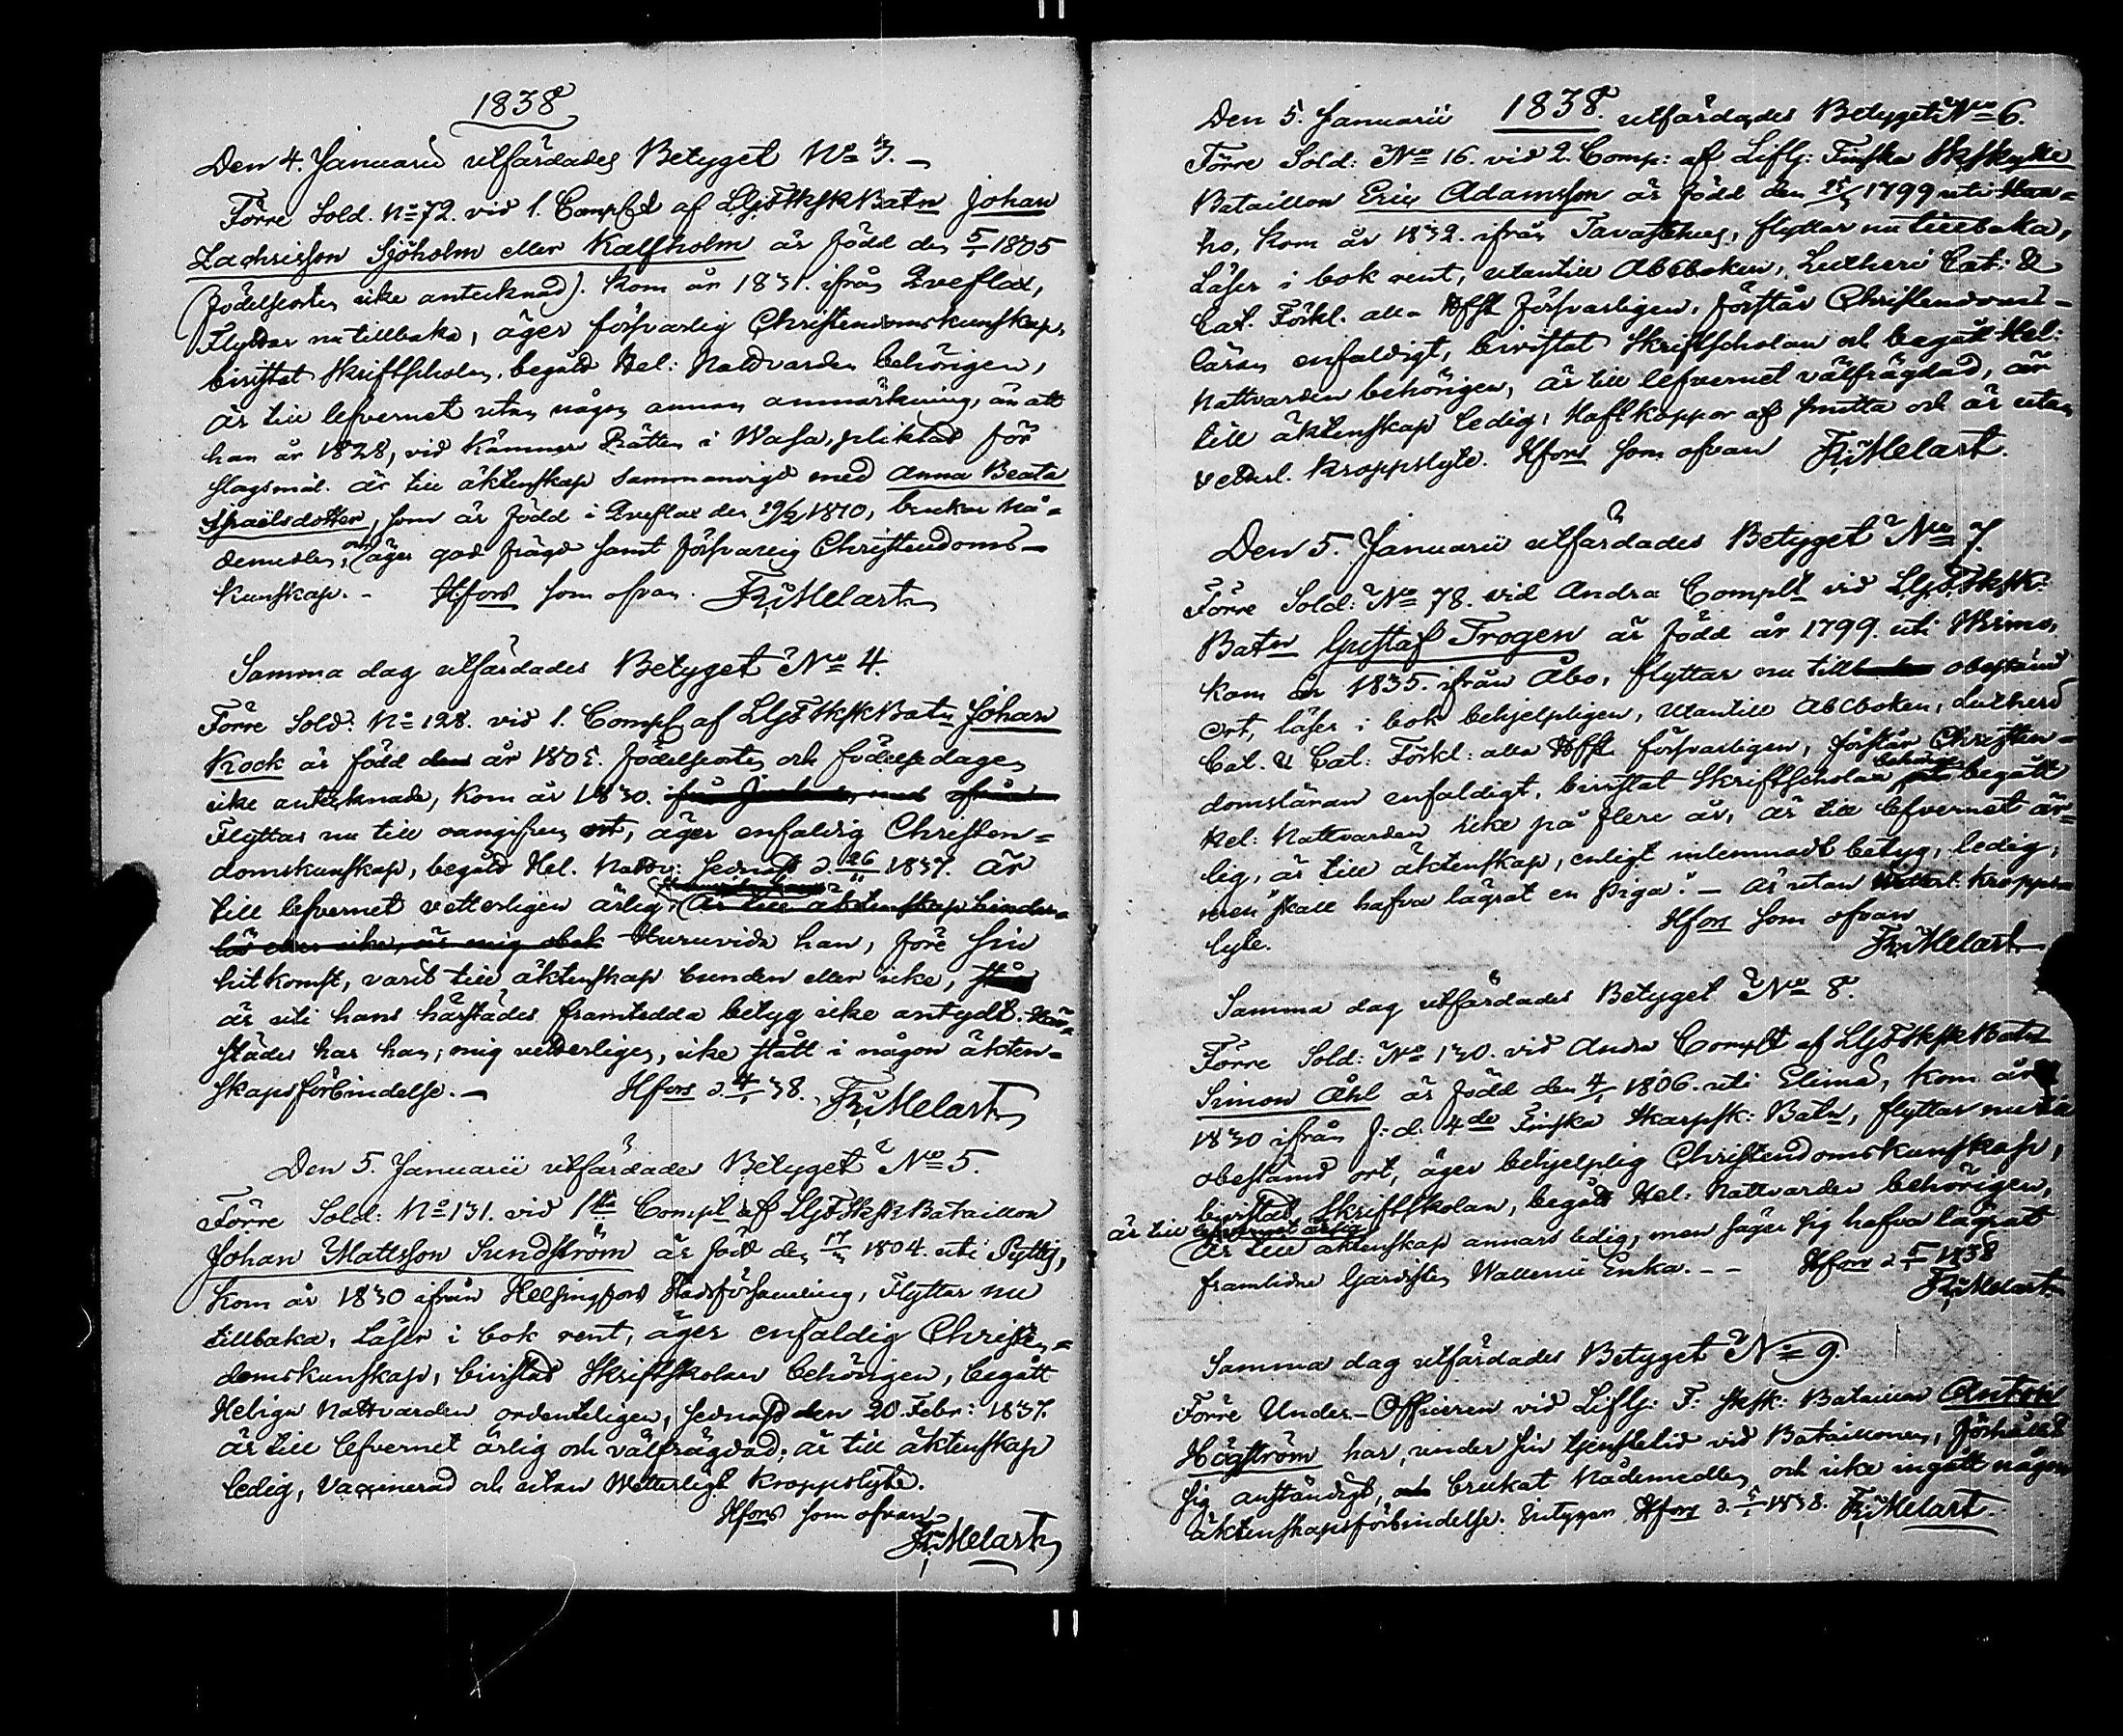 1838
Den 4. Januarii utfärdades Betyget No 3. –
Förre Sold. No 72. vid 1. Comp af LGFSkSkBatn Johan
Zachrisson Sjöholm eller Kalfholm är född den 5/1 1805
(födelseorten icke antecknad). Kom år 1831. ifrån Qveflax,
Flyttar nu tillbaka, äger försvarlig Christendomskunskap,
bivistat Skriftscholan, begått Hel: Nattvarden behörigen,
är till lefvernet utan någon annan anmärkning, än att
han år 1828, vid Kämners Rätten i Wasa, pliktat för
slagsmål. är till äktenskap sammanvigd med Anna Beata
Israelsdotter, som är född i Qveflax den 29/2 1810, brukar Nå-
demedlen, äger god frägd samt försvarlig Christendoms-
kunskap. – Hfors som ofvan. FrMelart
Samma dag utfärdades Betyget No 4.
Förre Sold: No 128. vid 1. Comp af LGFSkSkBatn Johan
Kock är född den år 1805. födelseorten och födelsedagen
icke antecknade, Kom år 1830.
Flyttar nu till oangifven ort, äger enfaldig Christen-
domskunskap, begått Hel. Nattv: senast d. 26/11 1837. Är
till lefvernet vetterligen ärlig, är till äktenskap hinder-
lös eller icke, är mig obek Huruvida han, före sin
hitkomst, varit till äktenskap bunden eller icke,
är uti hans härstädes framtedda betyg icke antydt. Här-
städes har han, mig vetterligen, icke stått i någon äkten-
skapsförbindelse. – Hfors d. 4/1 38. FrMelart
Den 5. Januarii utfärdades Betyget No 5.
Förre Sold: No 131. vid 1sta Comp af LGFSkSkBataillon
Johan Mattsson Sundström är född den 17/3 1804. uti Pyttis,
Kom år 1830 ifrån Helsingfors Stadsförsamling, Flyttar nu
tillbaka, Läser i bok rent, äger enfaldig Christen-
domskunskap, bivistat Skriftskolan behörigen, begått
Heliga Nattvarden ordenteligen, senast den 20. Febr: 1837.
är till lefvernet ärlig och välfrägdad; är till äktenskap
ledig, Vaccinerad och utan Wetterligt kroppslyte.
Hfors som ofvan
FrMelart
1838.
Den 5. Januarii utfärdades Betyget No 6.
Förre Sold: No 16. vid 2. Comp: af Lifg: Finska Skskytte
Bataillon Eric Adamsson är född den 25/5 1799 uti Hau-
ho, Kom år 1832. ifrån Tavastehus, flyttar nu tillbaka,
Läser i bok rent, utantill Abcboken, Lutheri Cat: &
Cat. Förkl. alla försvarligen, förstår Christendoms-
läran enfaldigt, bivistat Skriftscholan och begått Hel:
Nattvarden behörigen, är till lefvernet välfrägdad, är
till äktenskap ledig, Haft koppor af smitta och är utan
vetterl. kroppslyte. Hfors som ofvan FrMelart.
Den 5. Januarii utfärdades Betyget No 7.
Förre Sold: No 78. vid Andra Comp vid LGFSkSk
Batn Gustaf Trogen är född år 1799. uti Wirmo,
Kom år 1835. ifrån Åbo, flyttar nu till obestämd
ort, läser i bok behjelpligen, Utantill Abcboken, Lutheri
Cat. & Cat: Förkl: alla försvarligen, förstår Christen-
domsläran enfaldigt, bivistat Skriftscholan behörigen begått
Hel: Nattvarden icke på flere år, är till lefvernet är-
lig, är till äktenskap, enligt inlemnadt betyg, ledig,
men "skall hafva lägrat en piga." – Är utan Wetterl. kropps-
lyte. Hfors som ofvan
FrMelart
Samma dag utfärdades Betyget No 8.
Förre Sold: No 130. vid Andra Comp af LGFSkSkBatn
Simon Åhl är född den 4/1 1806. uti Elimä, Kom år
1830 ifrån f: d: 4de Finska Skarpsk: Batn, flyttar nu till
obestämd ort, äger behjelplig Christendomskunskap,
bivistat Skriftskolan, begått Hel: Nattvarden behörigen,
är till lefvernet ärlig
är till äktenskap annars ledig, men säges sig hafva lägrat
framlidne Gardisten Wallenii Enka. – – Hfors d. 5/1 1838
FrMelart
Samma dag utfärdades Betyget No 9.
Förre Under-Officeren vid Lifg: F: Sksk: Bataillon Anton
Högström har, under sin tjenstetid vid Bataillonen, förhållit
sig anständigt, brukat Nådemedlen och icke ingått någon
äktenskapsförbindelse. Intygar Hfors d. 5/1 1838. FrMelart.